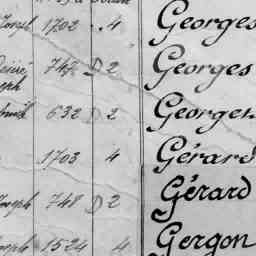 1702 4 Georges
742 D 2 Georges
632 D 2 Georges
1703 4 Gérard
Joseph 748 D 2 Gérard
Joseph 1524 4 Gergon